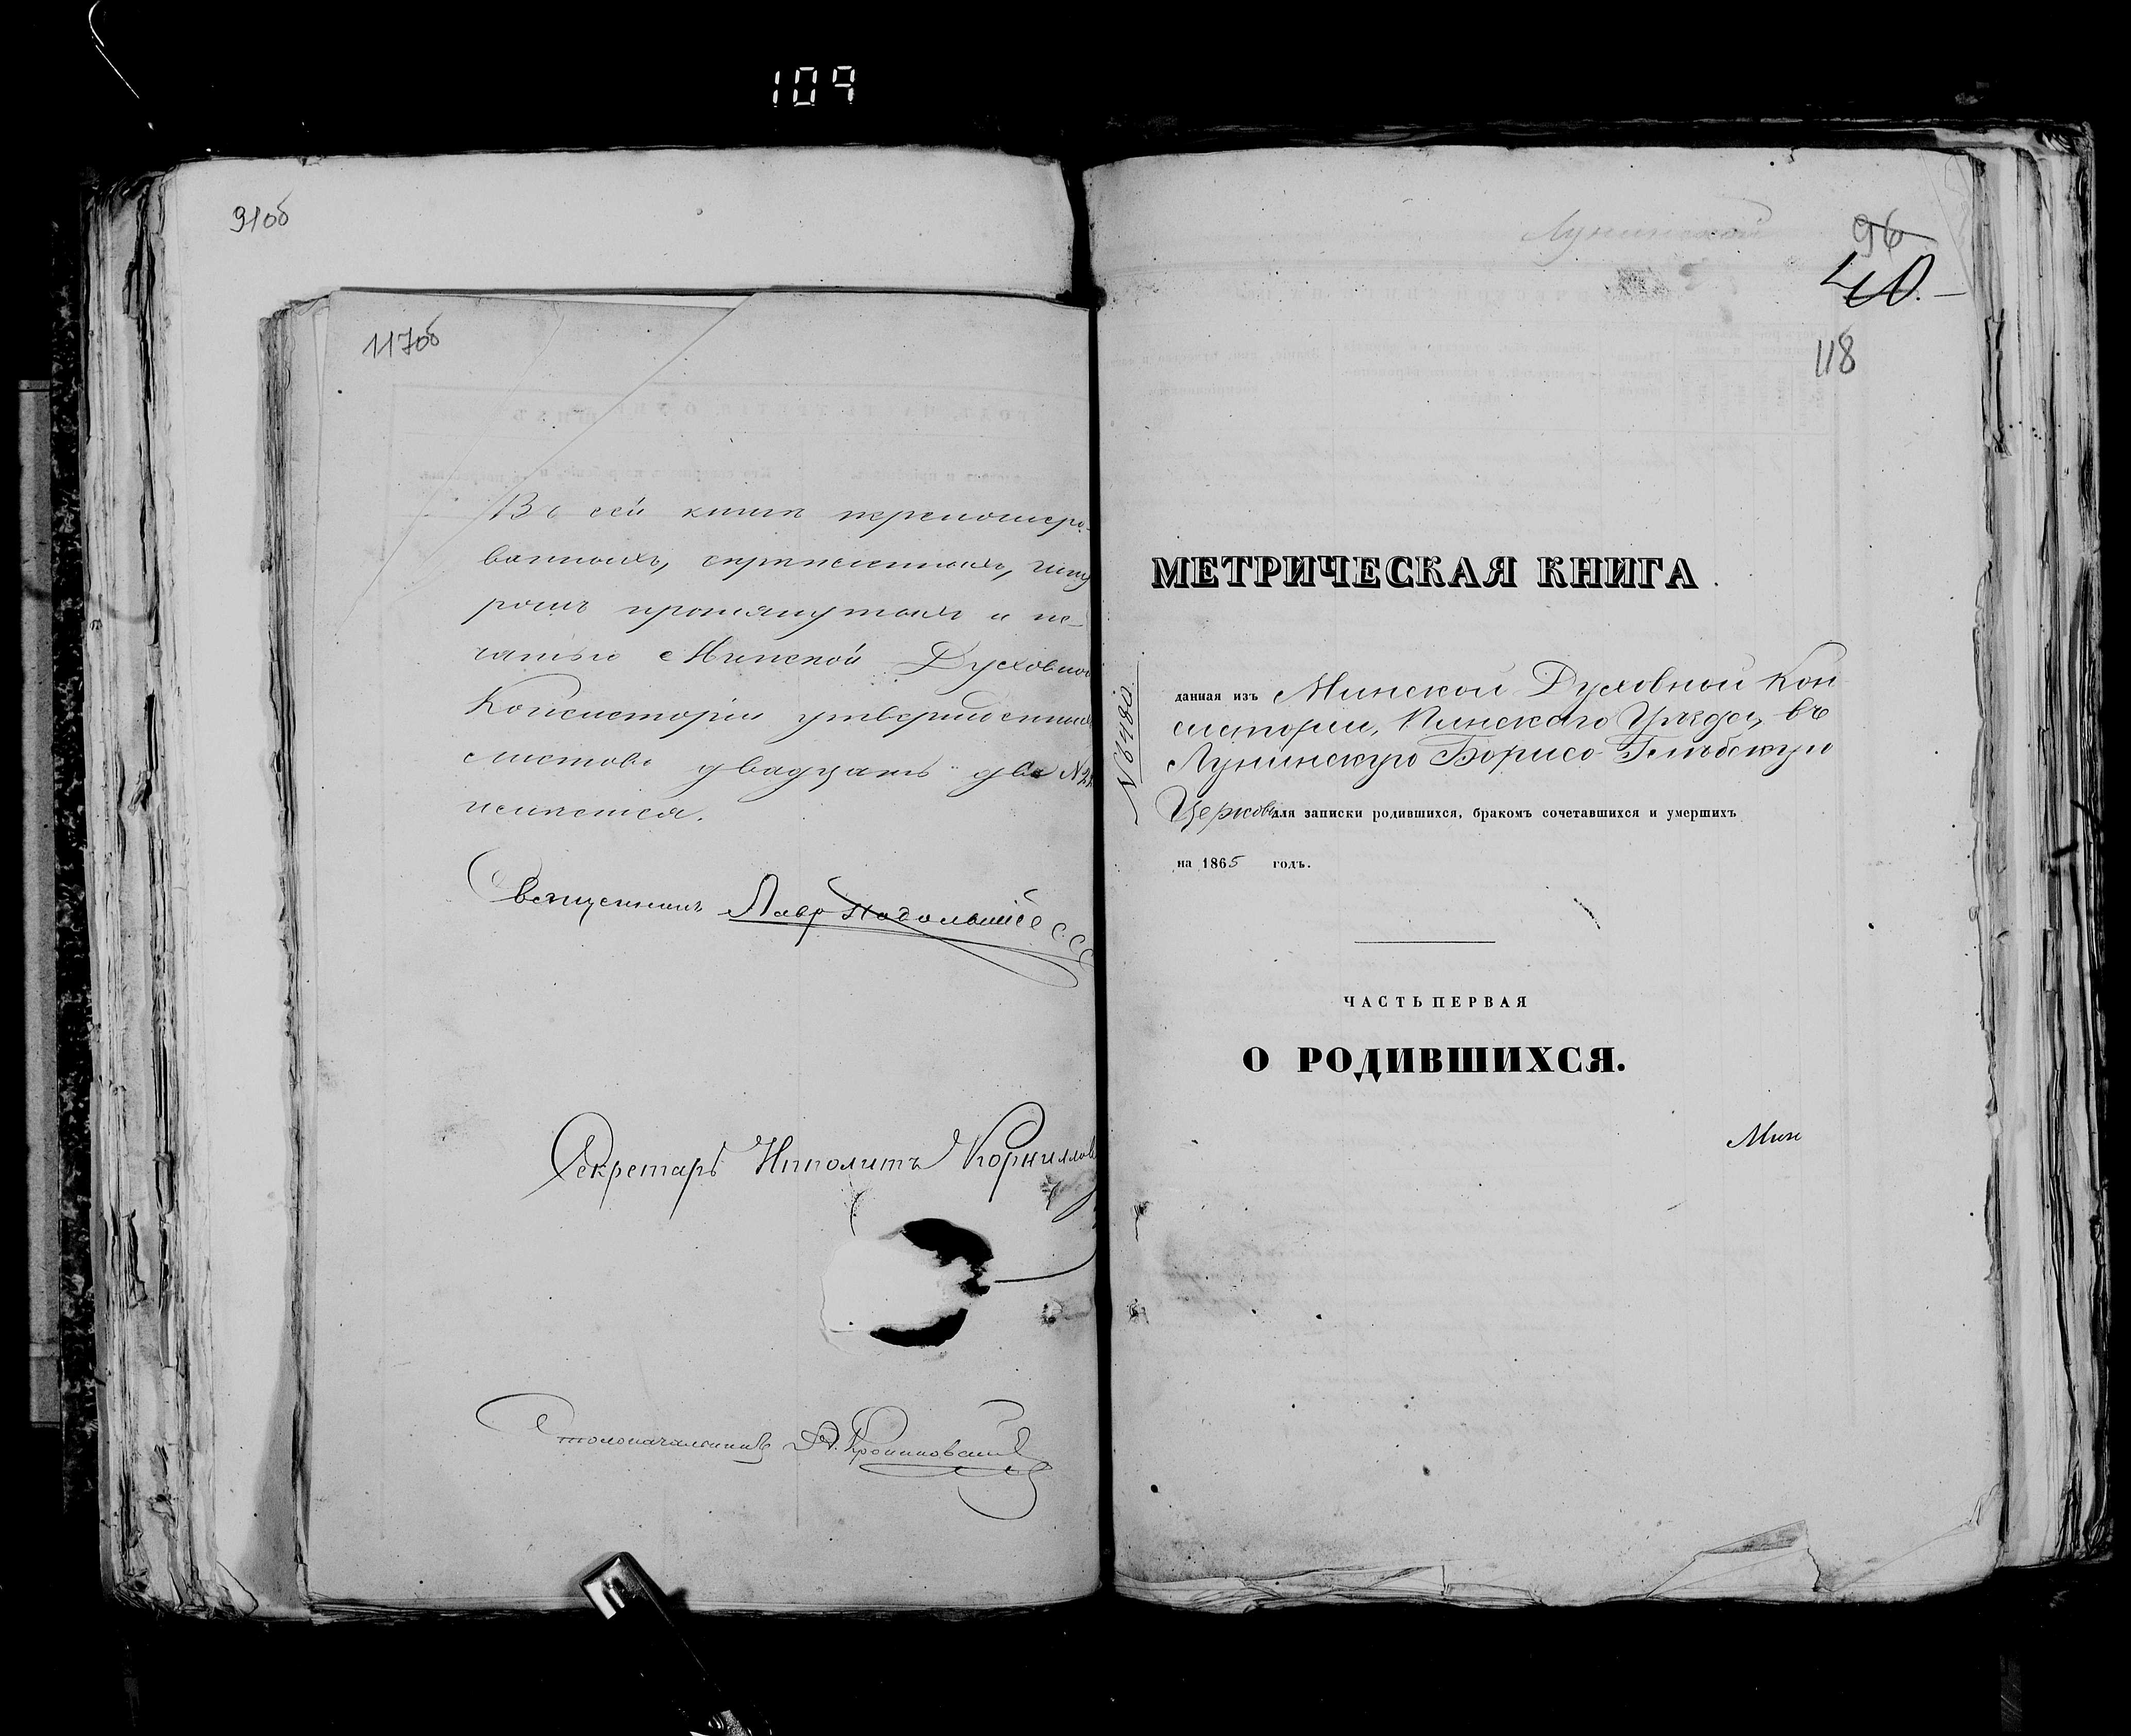 109
91об
117об
Въ сей книгѣ перенумеро-
ванныхъ, скрѣпленныхъ, шну
ромъ протянутыхъ и пе-
чатью Минской Духовной
Консисторіи утвержденныхъ
листовъ двадцать два №22
числится.
Священникъ Лавръ
Секретарь Ипполитъ Корниллов
Столоначальникъ
Лунинской
96
40.
118
МЕТРИЧЕСКАЯ КНИГА
№ 8480
данная изъ Минской Духовной Кон
систоріи, Пинскаго Уѣзда, въ
Лунинскую Борисо-Глѣбскую
Церковь для записки родившихся, бракомъ сочетавшихся и умершихъ
на 1865 годъ.
ЧАСТЬ ПЕРВАЯ
О РОДИВШИХСЯ.
Мин